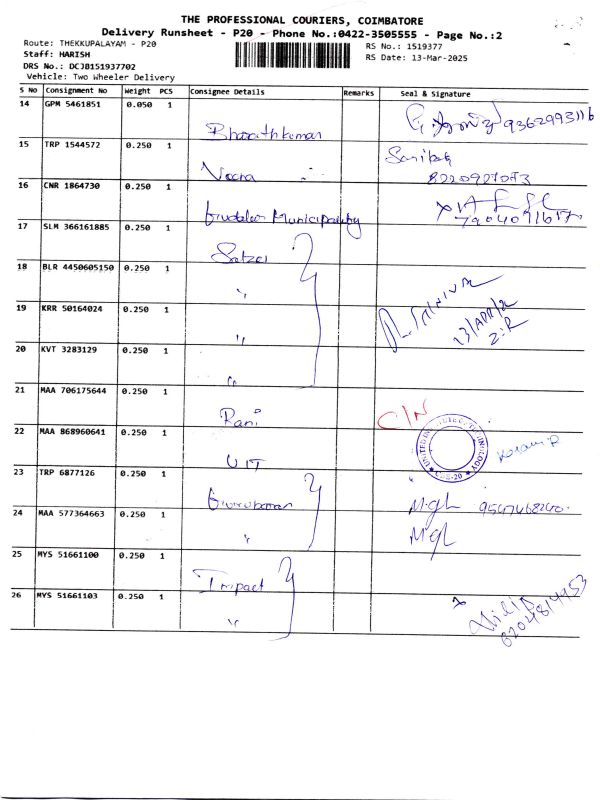 THE PROFESSIONAL COURIERS, COIMBATORE
Delivery Runsheet - P20 - Phone No.:0422-3505555 - Page No.:2
Route: THEKKUPALAYAM - P20
RS No.: 1519377
Staff: HARISH
RS Date: 13-Mar-2025
DRS No.: DCJB151937702
Vehicle: Two Wheeler Delivery
S No Consignment No Weight PCS Consignee Details Remarks Seal & Signature
14 GPM 5461851 0.050 1
Bharathkumar 9362993116
15 TRP 1544572 0.250 1
Veena 8220927073
16 CNR 1864730 0.250 1
Gudalur Municipality 7904091617
17 SLM 366161885 0.250 1
18 BLR 4450605150 0.250 1
"
19 KRR 50164024 0.250 1
"
20 KVT 3283129 0.250 1
"
21 MAA 706175644 0.250 1
Rani C/N
22 MAA 868960641 0.250 1
UIT
23 TRP 6877126 0.250 1
24 MAA 577364663 0.250 1
"
25 MYS 51661100 0.250 1
Impact
26 MYS 51661103 0.250 1
"